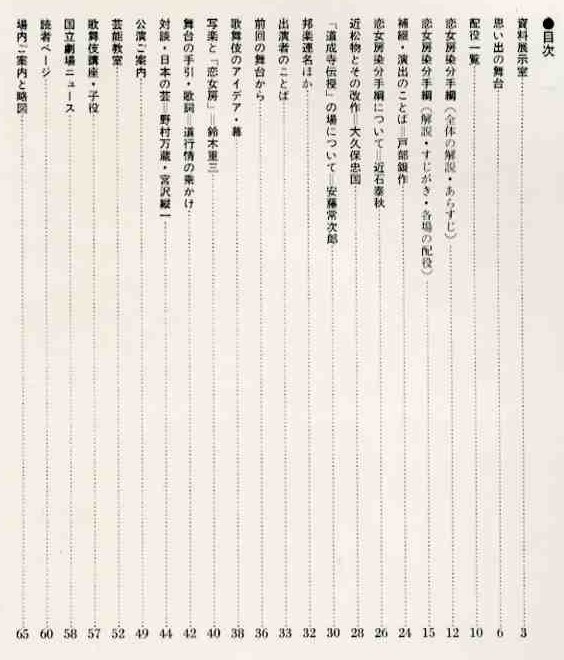 ●目次
資料展示室 3
思い出の舞台 6
配役一覧 10
恋女房染分手綱（全体の解説・あらすじ） 12
恋女房染分手綱（解説・すじがき・各場の配役） 15
補綴・演出のことば＝戸部銀作 24
恋女房染分手綱について＝近石泰秋 26
近松物とその改作＝大久保忠国 28
「道成寺伝授」の場について＝安藤常次郎 30
邦楽連名ほか 32
出演者のことば 33
前回の舞台から 36
歌舞伎のアイデア・幕 38
写楽と「恋女房」＝鈴木重三 40
舞台の手引・歌詞＝道行情の乗かけ 42
対談・日本の芸＝野村万蔵・宮沢縦一 44
公演ご案内 49
芸能教室 52
歌舞伎講座・子役 57
国立劇場ニュース 58
読者ページ 60
場内ご案内と略図 65